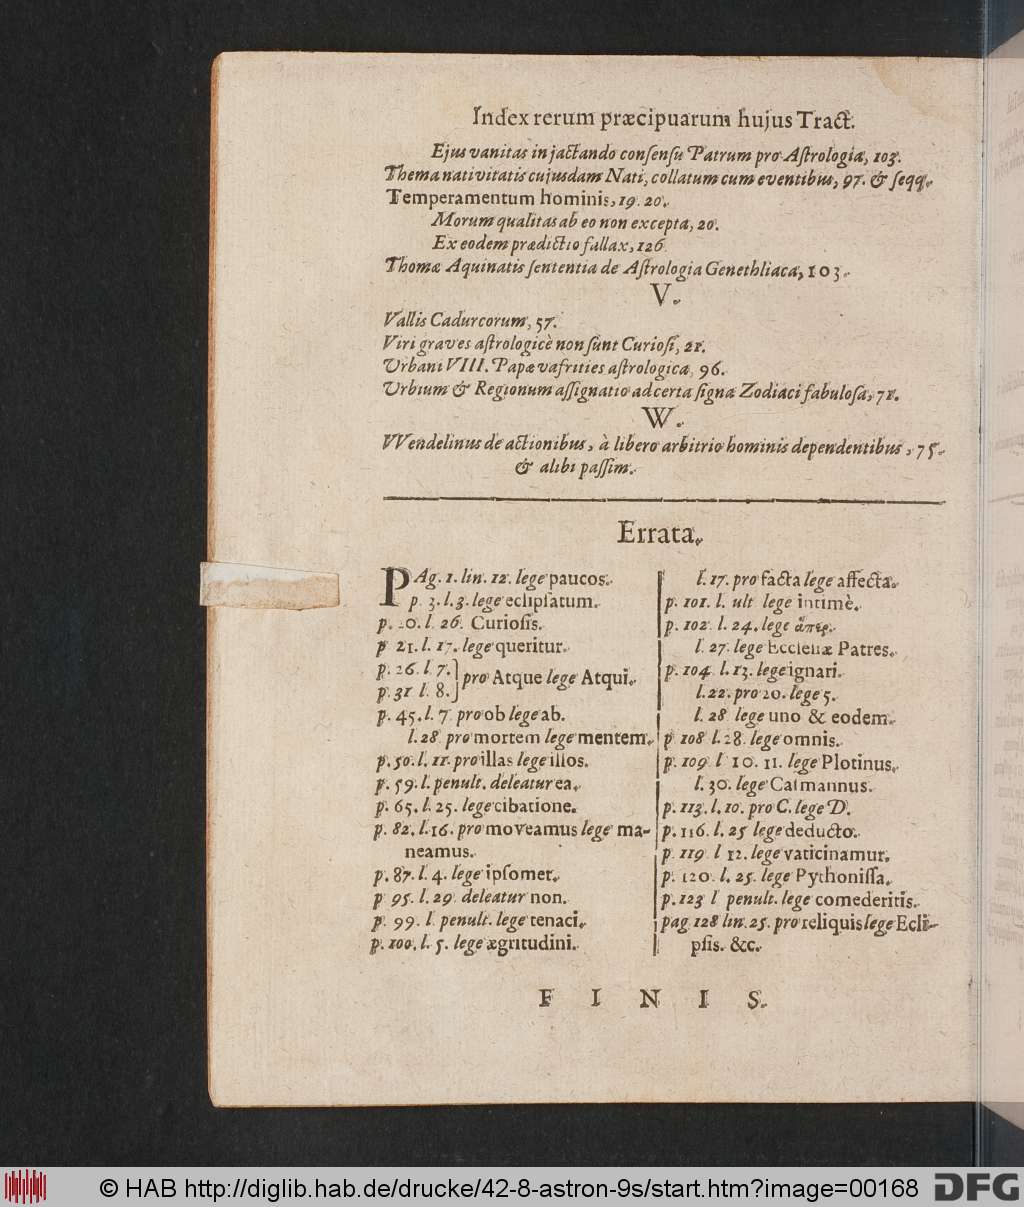 Index rerum præcipuarum hujus Tract.
Ejus vanitas in jactando consensu Patrum pro Astrologia, 103.
Thema nativitatis cujusdam Nati, collatum cum eventibus, 97. & seqq.
Temperamentum hominis, 19. 20.
Morum qualitas ab eo non excepta, 20.
Ex eodem prædictio fallax, 126.
Thomæ Aquinatis sententia de Astrologia Genethliaca, 103.
V.
Vallis Cadurcorum, 57.
Viri graves astrologicè non sunt Curiosi, 21.
Urbani VIII. Papæ vafrities astrologica, 96.
Urbium & Regionum assignatio ad certa signa Zodiaci fabulosa, 71.
W.
VVendelinus de actionibus, à libero arbitrio hominis dependentibus, 75.
& alibi passim.
Errata.
PAg. 1. lin. 12. lege paucos.
p. 3. l. 3. lege eclipsatum.
p. 20. l. 26. Curiosis.
p 21. l. 17. lege queritur.
p. 26. l 7.
p. 31 l. 8. } pro Atque lege Atqui.
p. 45. l. 7. pro ob lege ab.
l. 28 pro mortem lege mentem.
p. 50. l. 11. pro illas lege illos.
p. 59. l. penult. deleatur ea.
p. 65. l. 25. lege cibatione.
p. 82. l. 16. pro moveamus lege ma-
neamus.
p. 87. l. 4. lege ipsomet.
p 95. l. 29. deleatur non.
p. 99. l. penult. lege tenaci.
p. 100. l. 5. lege ægritudini.
l. 17. pro facta lege affecta.
p. 101. l. ult lege intimè.
p. 102. l. 24. lege ἅπερ.
l. 27. lege Ecclesiæ Patres.
p. 104. l. 13. lege ignari.
l. 22. pro 20. lege 5.
l. 28 lege uno & eodem.
p 108 l. 28. lege omnis.
p. 109. l 10. 11. lege Plotinus.
l. 30. lege Calmannus.
p. 113. l. 10. pro C. lege D.
p. 116. l. 25 lege deducto.
p. 119 l 12. lege vaticinamur.
p. 120. l. 25. lege Pythonissa.
p. 123 l penult. lege comederitis.
pag. 128 lin. 25. pro reliquis lege Ecli-
psis. &c.
F I N I S.
© HAB http://diglib.hab.de/drucke/42-8-astron-9s/start.htm?image=00168
DFG